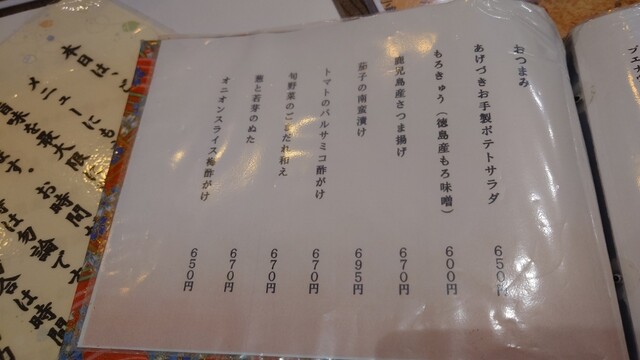 おつまみ
あげづきお手製ポテトサラダ 650円
もろきゅう（徳島産もろ味噌） 600円
鹿児島産さつま揚げ 670円
茄子の南蛮漬け 695円
トマトのバルサミコ酢がけ 670円
旬野菜のごまだれ和え 670円
葱と若芽のぬた 670円
オニオンスライス梅酢がけ 650円
本日は、
メニューにも
を最大限
お時間
は勿論で
は時間